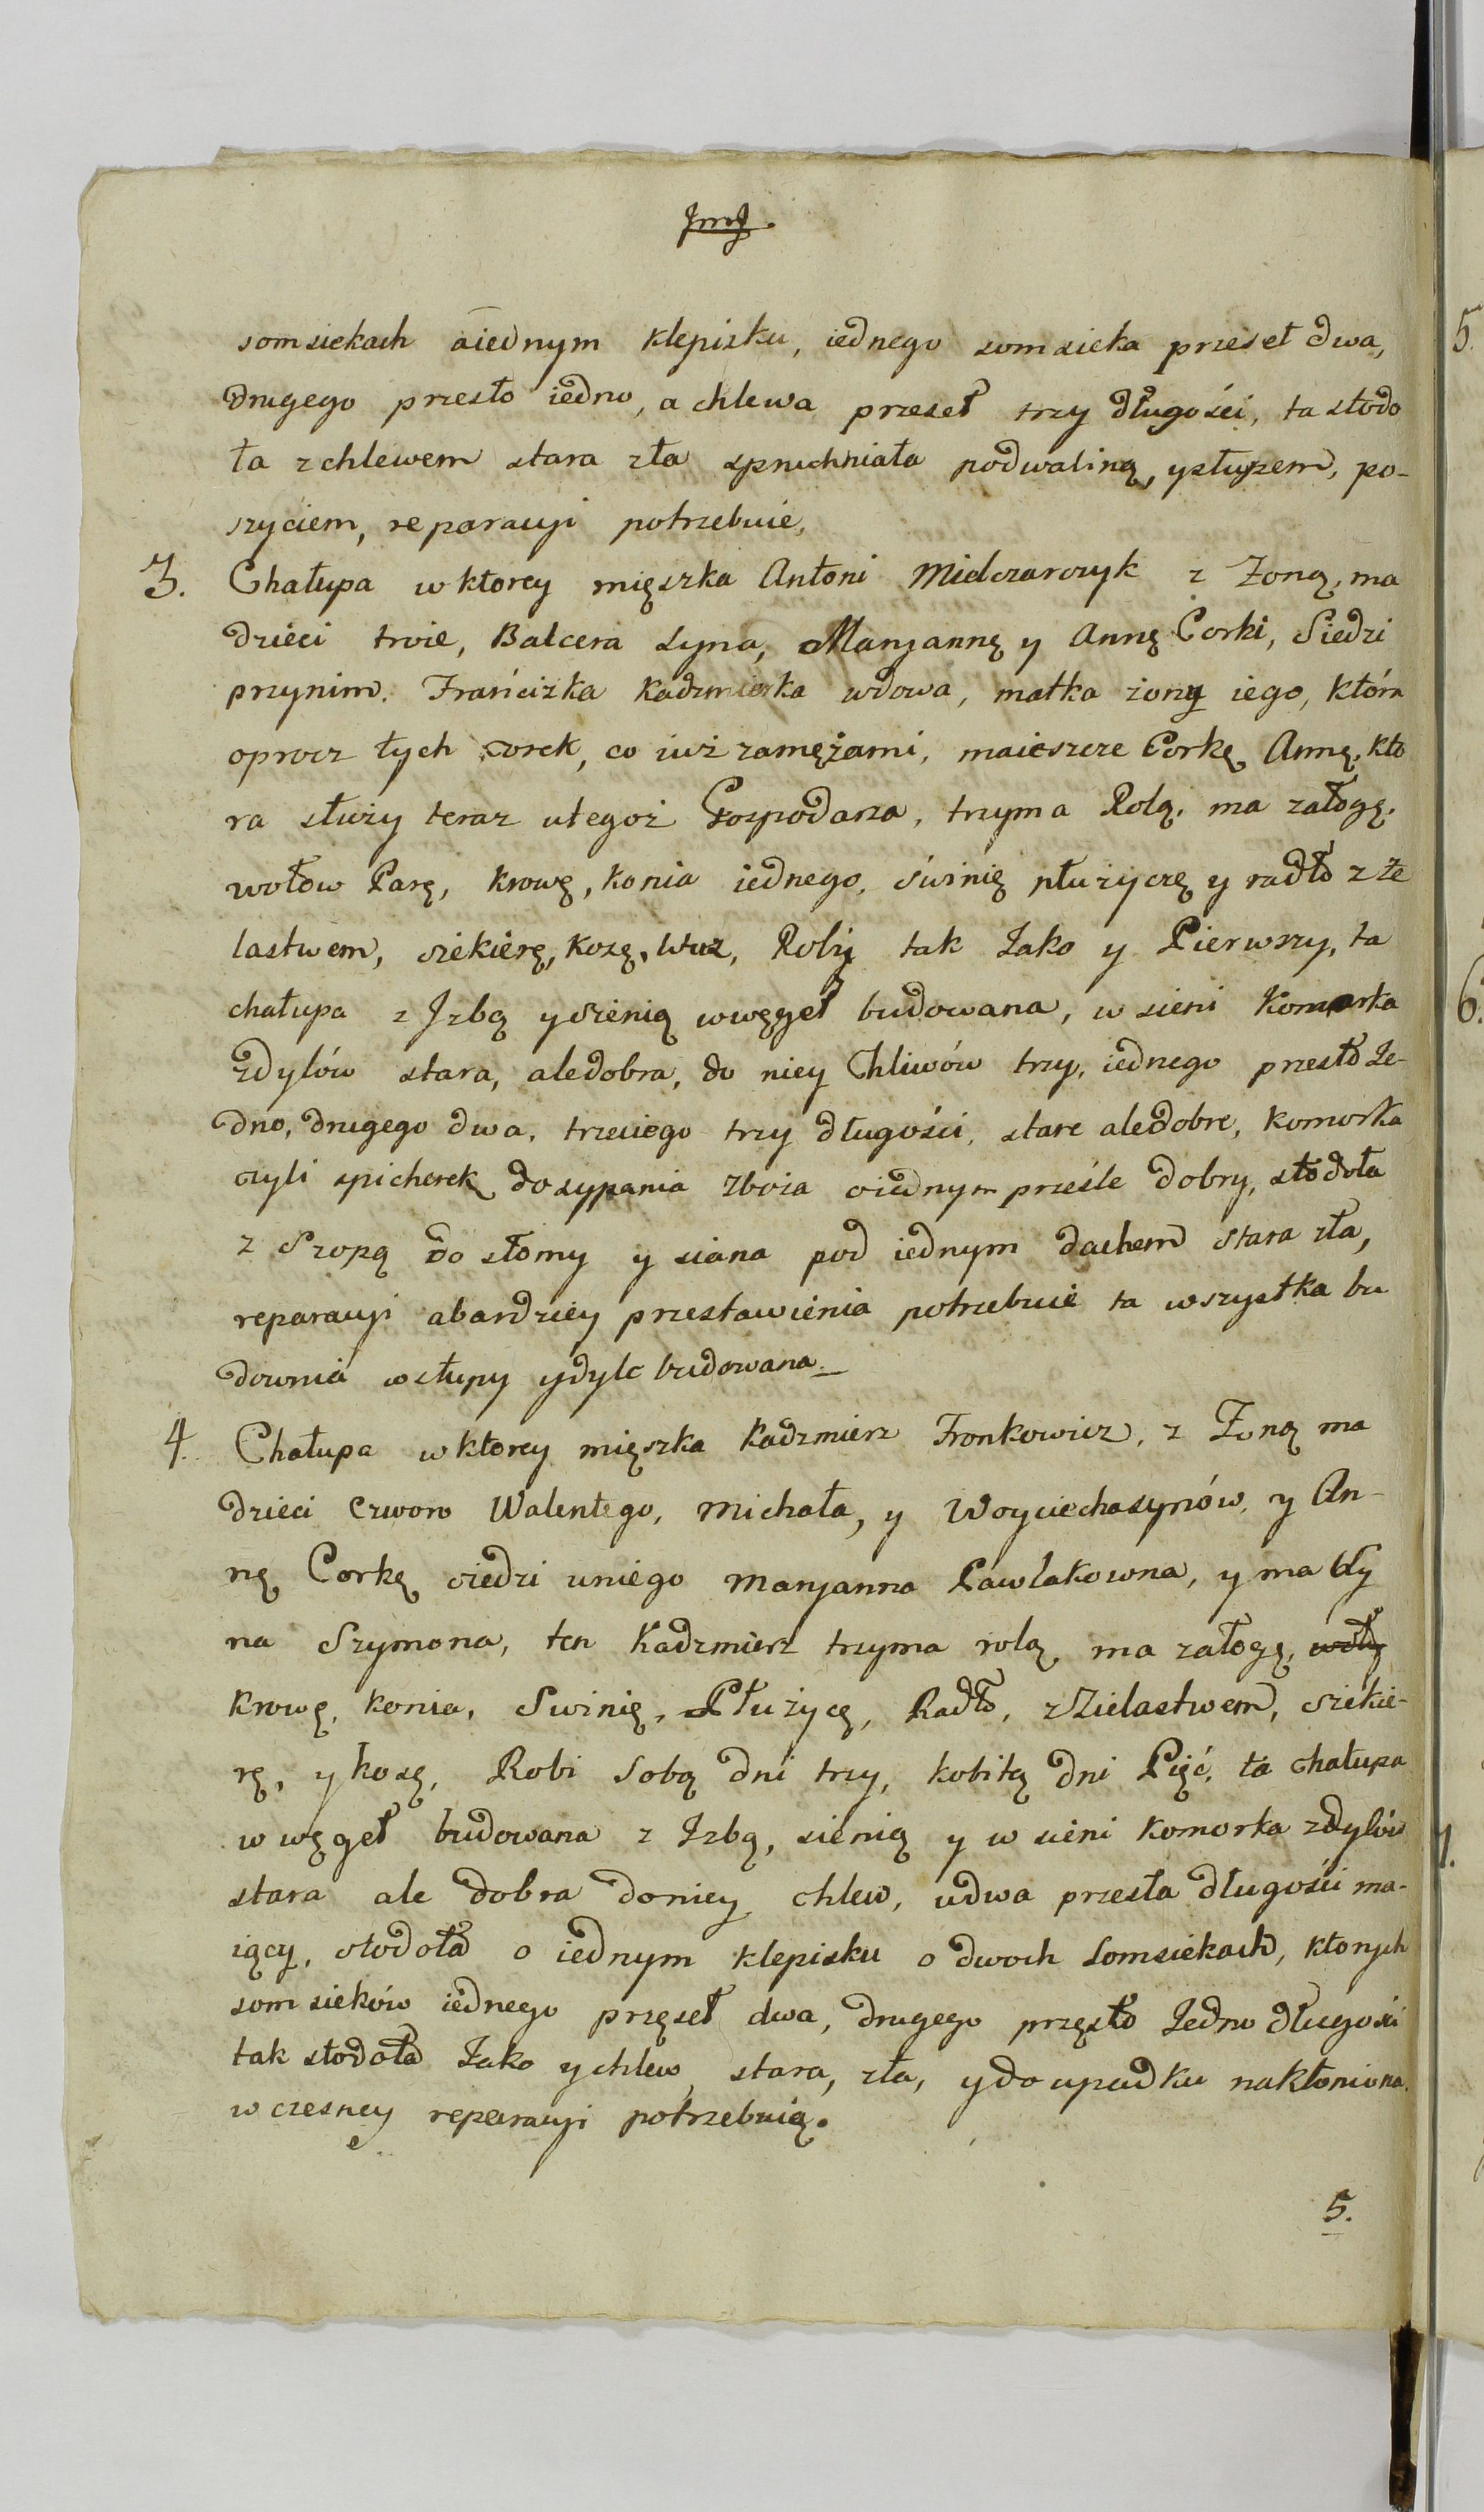 JmJ.
somsiekach aiednym klepisku, iednego somsieka przeseł dwa,
drugego przesło iedno, a chlewa przeseł trzy długości, ta stodo
ła zchlewem stara zła spruchniała podwaliną, ysłupem, po-
szyciem, reparacyi potrzebuie,
3. Chałupa wktorey mięszka Antoni Mielczarczyk z Zoną, ma
dzieci troie, Balcera Syna, Maryannę y Annę Corki, Siedzi
przynim. Frańciszka Kadzmierka wdowa, matka żony iego, która
oprocz tych corek, co iuż zamężami, maieszcze Corkę Annę, kto
ra służy teraz utegoż Gospodarza, trzyma Rolą, ma załogę,
wołow Parę, krowę, konia iednego, świnię płużyczę y radło z że
lastwem, siekierę, kosę, Wuz, Robi tak Jako y Pierwszy, ta
chałupa z Jzbą ysienią wwęgeł budowana, w sieni Komorka
zdylów stara, aledobra, do niey Chliwów trzy, iednego przesło Je-
dno, drugego dwa, trzeciego trzy długości, stare aledobre, komorka
czyli spicherek dosypania zboża oiednym prześle dobry, stodoła
z Szopą do słomy y siana pod iednym dachem stara zła,
reparacyi abardziey przestawienia potrzebuie ta wszystka bu
downia wsłupy ydyle budowana._
4. Chałupa wktorey mięszka Kadzmierz Fronkowicz, z Zoną ma
dzieci czworo Walentego, Michała, y Woyciechasynów, y An-
nę Corkę siedzi uniego Maryanna Pawlakowna, y ma Sy
na Szymona, ten Kadzmierz trzyma rolą ma załogę, woły
krowę, konia, Swinię, Płużycę, Radło, zZielastwem, siekie-
rę, y kosę, Robi Sobą dni trzy, kobitą dni Pięć, ta chałupa
w węgeł budowana z Jzbą, sienią y w sieni Komorka zdylów
stara ale dobra doniey chlew, udwa przesła długości ma-
iący, stodoła o iednym klepisku o dwoch Somsiekach, ktorych
somsieków iednego przęseł dwa, drugego przęsło Jedno długości
tak stodoła Jako ychlew, stara, zła, ydoupadku nakłoniona,
wczesney reparacyi potrzebuią.
5.
5.
6.
7.